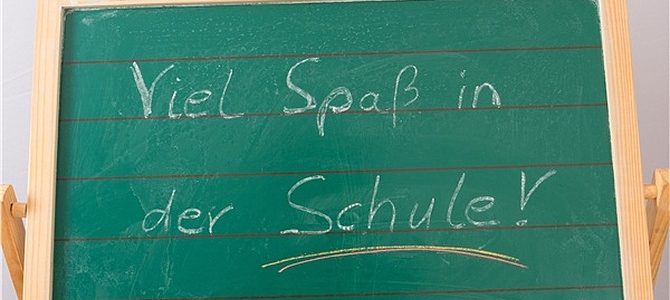 Viel Spaß in
der Schule!